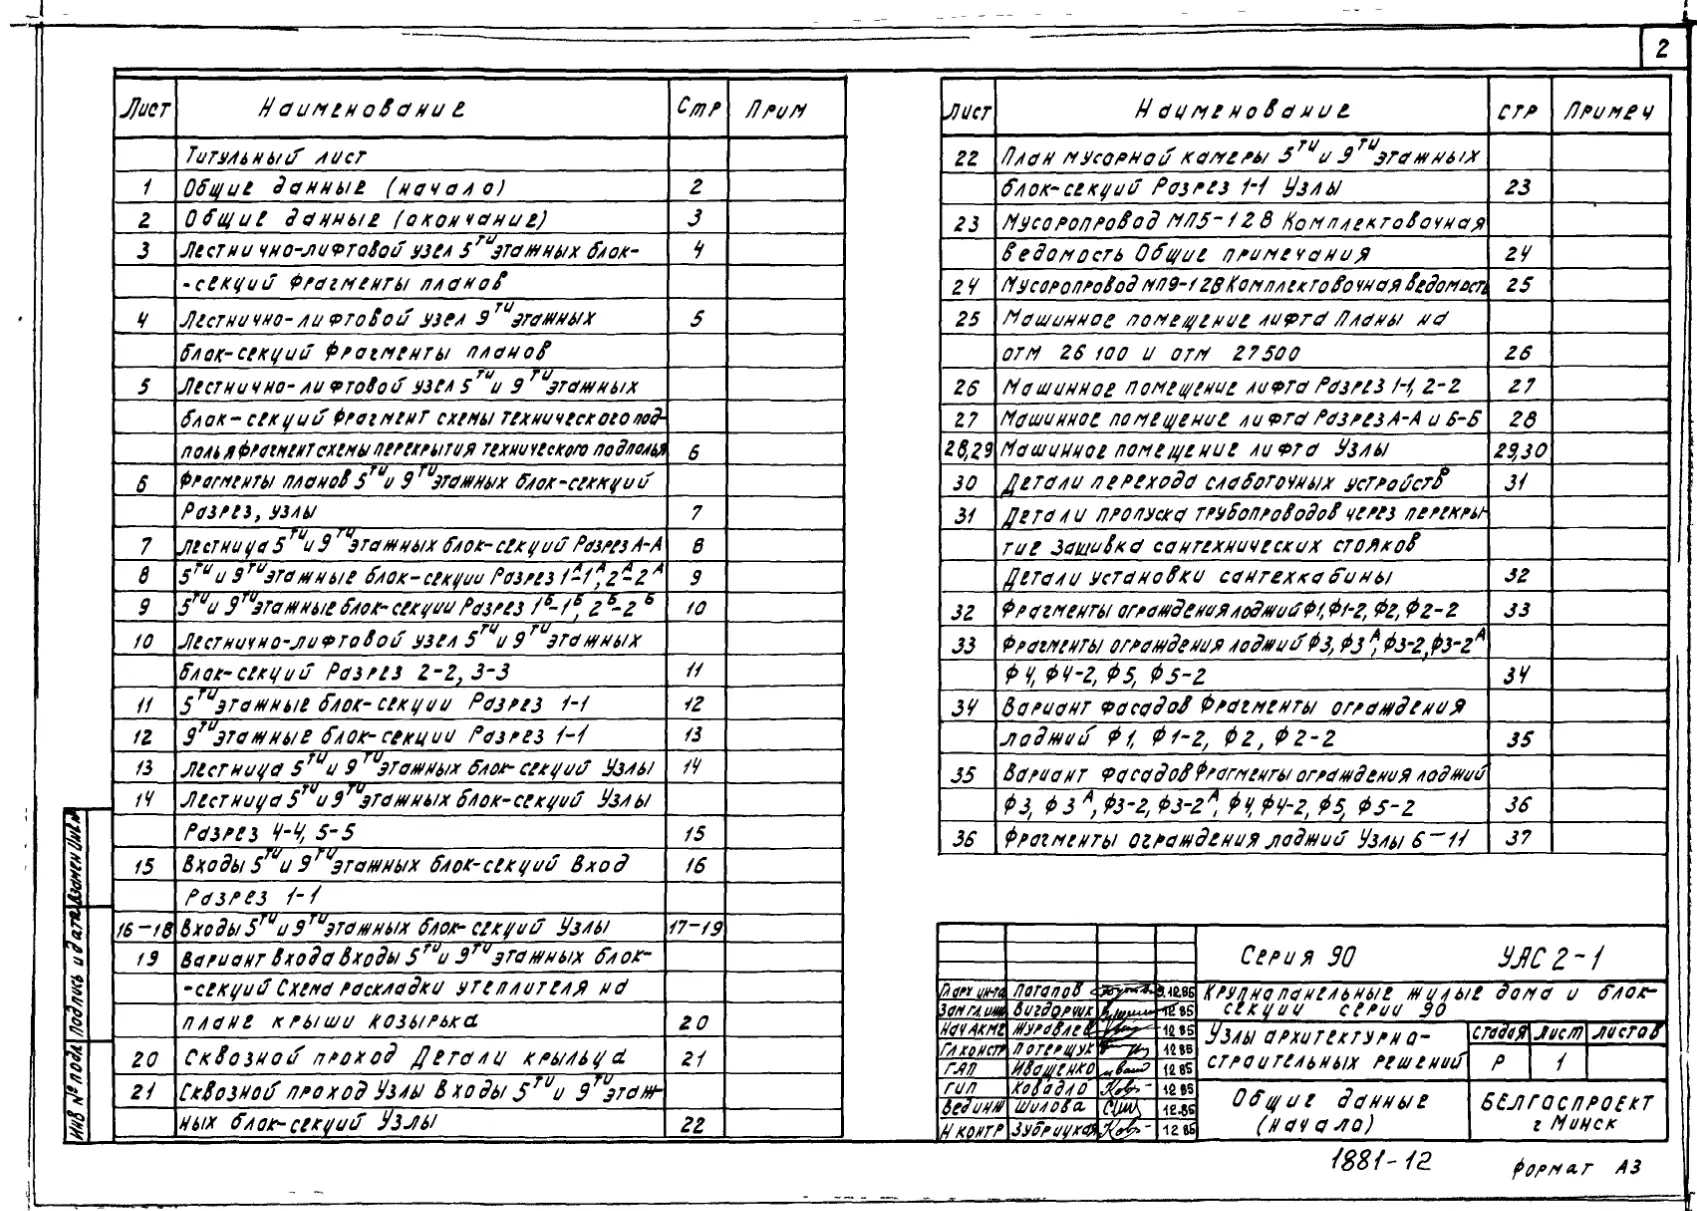 2
Лист Наименование Стр Прим
Титульный лист
1 Общие данные (начало) 2
2 Общие данные (окончание) 3
3 Лестнично-лифтовой узел 5ти этажных блок- 4
-секций Фрагменты планов
4 Лестнично-лифтовой узел 9ти этажных 5
блок-секций Фрагменты планов
5 Лестнично-лифтовой узел 5ти и 9ти этажных
блок-секций Фрагмент схемы технического под-
полья фрагмент схемы перекрытия технического подполья 6
6 Фрагменты планов 5ти и 9ти этажных блок-секкций
Разрез, узлы 7
7 Лестница 5ти и 9ти этажных блок-секций Разрез А-А 8
8 5ти и 9ти этажные блок-секции Разрез 1А-1А, 2А-2А 9
9 5ти и 9ти этажные блок-секции Разрез 1Б-1Б, 2Б-2Б 10
10 Лестнично-лифтовой узел 5ти и 9ти этажных
блок-секций Разрез 2-2, 3-3 11
11 5ти этажные блок-секции Разрез 1-1 12
12 9ти этажные блок-секции Разрез 1-1 13
13 Лестница 5ти и 9ти этажных блок-секций Узлы 14
14 Лестница 5ти и 9ти этажных блок-секций Узлы
Разрез 4-4, 5-5 15
15 Входы 5ти и 9ти этажных блок-секций Вход 16
Разрез 1-1
16-18 Входы 5ти и 9ти этажных блок-секций Узлы 17-19
19 Вариант входа Входы 5ти и 9ти этажных блок-
-секций Схема раскладки утеплителя на
плане крыши козырька 20
20 Сквозной проход Детали крыльца 21
21 Сквозной проход Узлы Входы 5ти и 9ти этаж-
ных блок-секций Узлы 22
Лист Наименование стр Примеч
22 План мусорной камеры 5ти и 9ти этажных
блок-секций Разрез 1-1 Узлы 23
23 Мусоропровод МП5-12В Комплектовочная
ведомость Общие примечания 24
24 Мусоропровод МП9-12В Комплектовочная ведомость 25
25 Машинное помещение лифта Планы на
отм 26 100 и отм 27500 26
26 Машинное помещение лифта Разрез 1-1, 2-2 27
27 Машинное помещение лифта Разрез А-А и Б-Б 28
28,29 Машинное помещение лифта Узлы 29,30
30 Детали перехода слаботочных устройств 31
31 Детали пропуска трубопроводов через перекры-
тие Зашивка сантехнических стояков
Детали установки сантехкабины 32
32 Фрагменты ограждения лоджий Ф1, Ф1-2, Ф2, Ф2-2 33
33 Фрагменты ограждения лоджий Ф3, Ф3А, Ф3-2, Ф3-2А
Ф4, Ф4-2, Ф5, Ф5-2 34
34 Вариант фасадов Фрагменты ограждения
лоджий Ф1, Ф1-2, Ф2, Ф2-2 35
35 Вариант фасадов Фрагменты ограждения лоджий
Ф3, Ф3А, Ф3-2, Ф3-2А, Ф4, Ф4-2, Ф5, Ф5-2 36
36 Фрагменты ограждения лоджий Узлы 6-11 37
Серия 90 УАС 2-1
Крупнопанельные жилые дома и блок-
секции серии 90
Гл арх ин-та Потапов 12.85
Зам гл инж Вигдорчик 12 85
Нач АКМ2 Журавлев 12 85
Гл констр Потерщук 12 85
ГАП Иващенко 12 85
ГИП Ковадло 12 85
Вед инж Шилова 12.85
Н контр Зубрицкая 12 85
Узлы архитектурно-
строительных решений
стадия лист листов
Р 1
Общие данные
(начало)
БЕЛГОСПРОЕКТ
г Минск
Инв № подл Подпись и дата Взамен Инв №
1881-12
формат А3